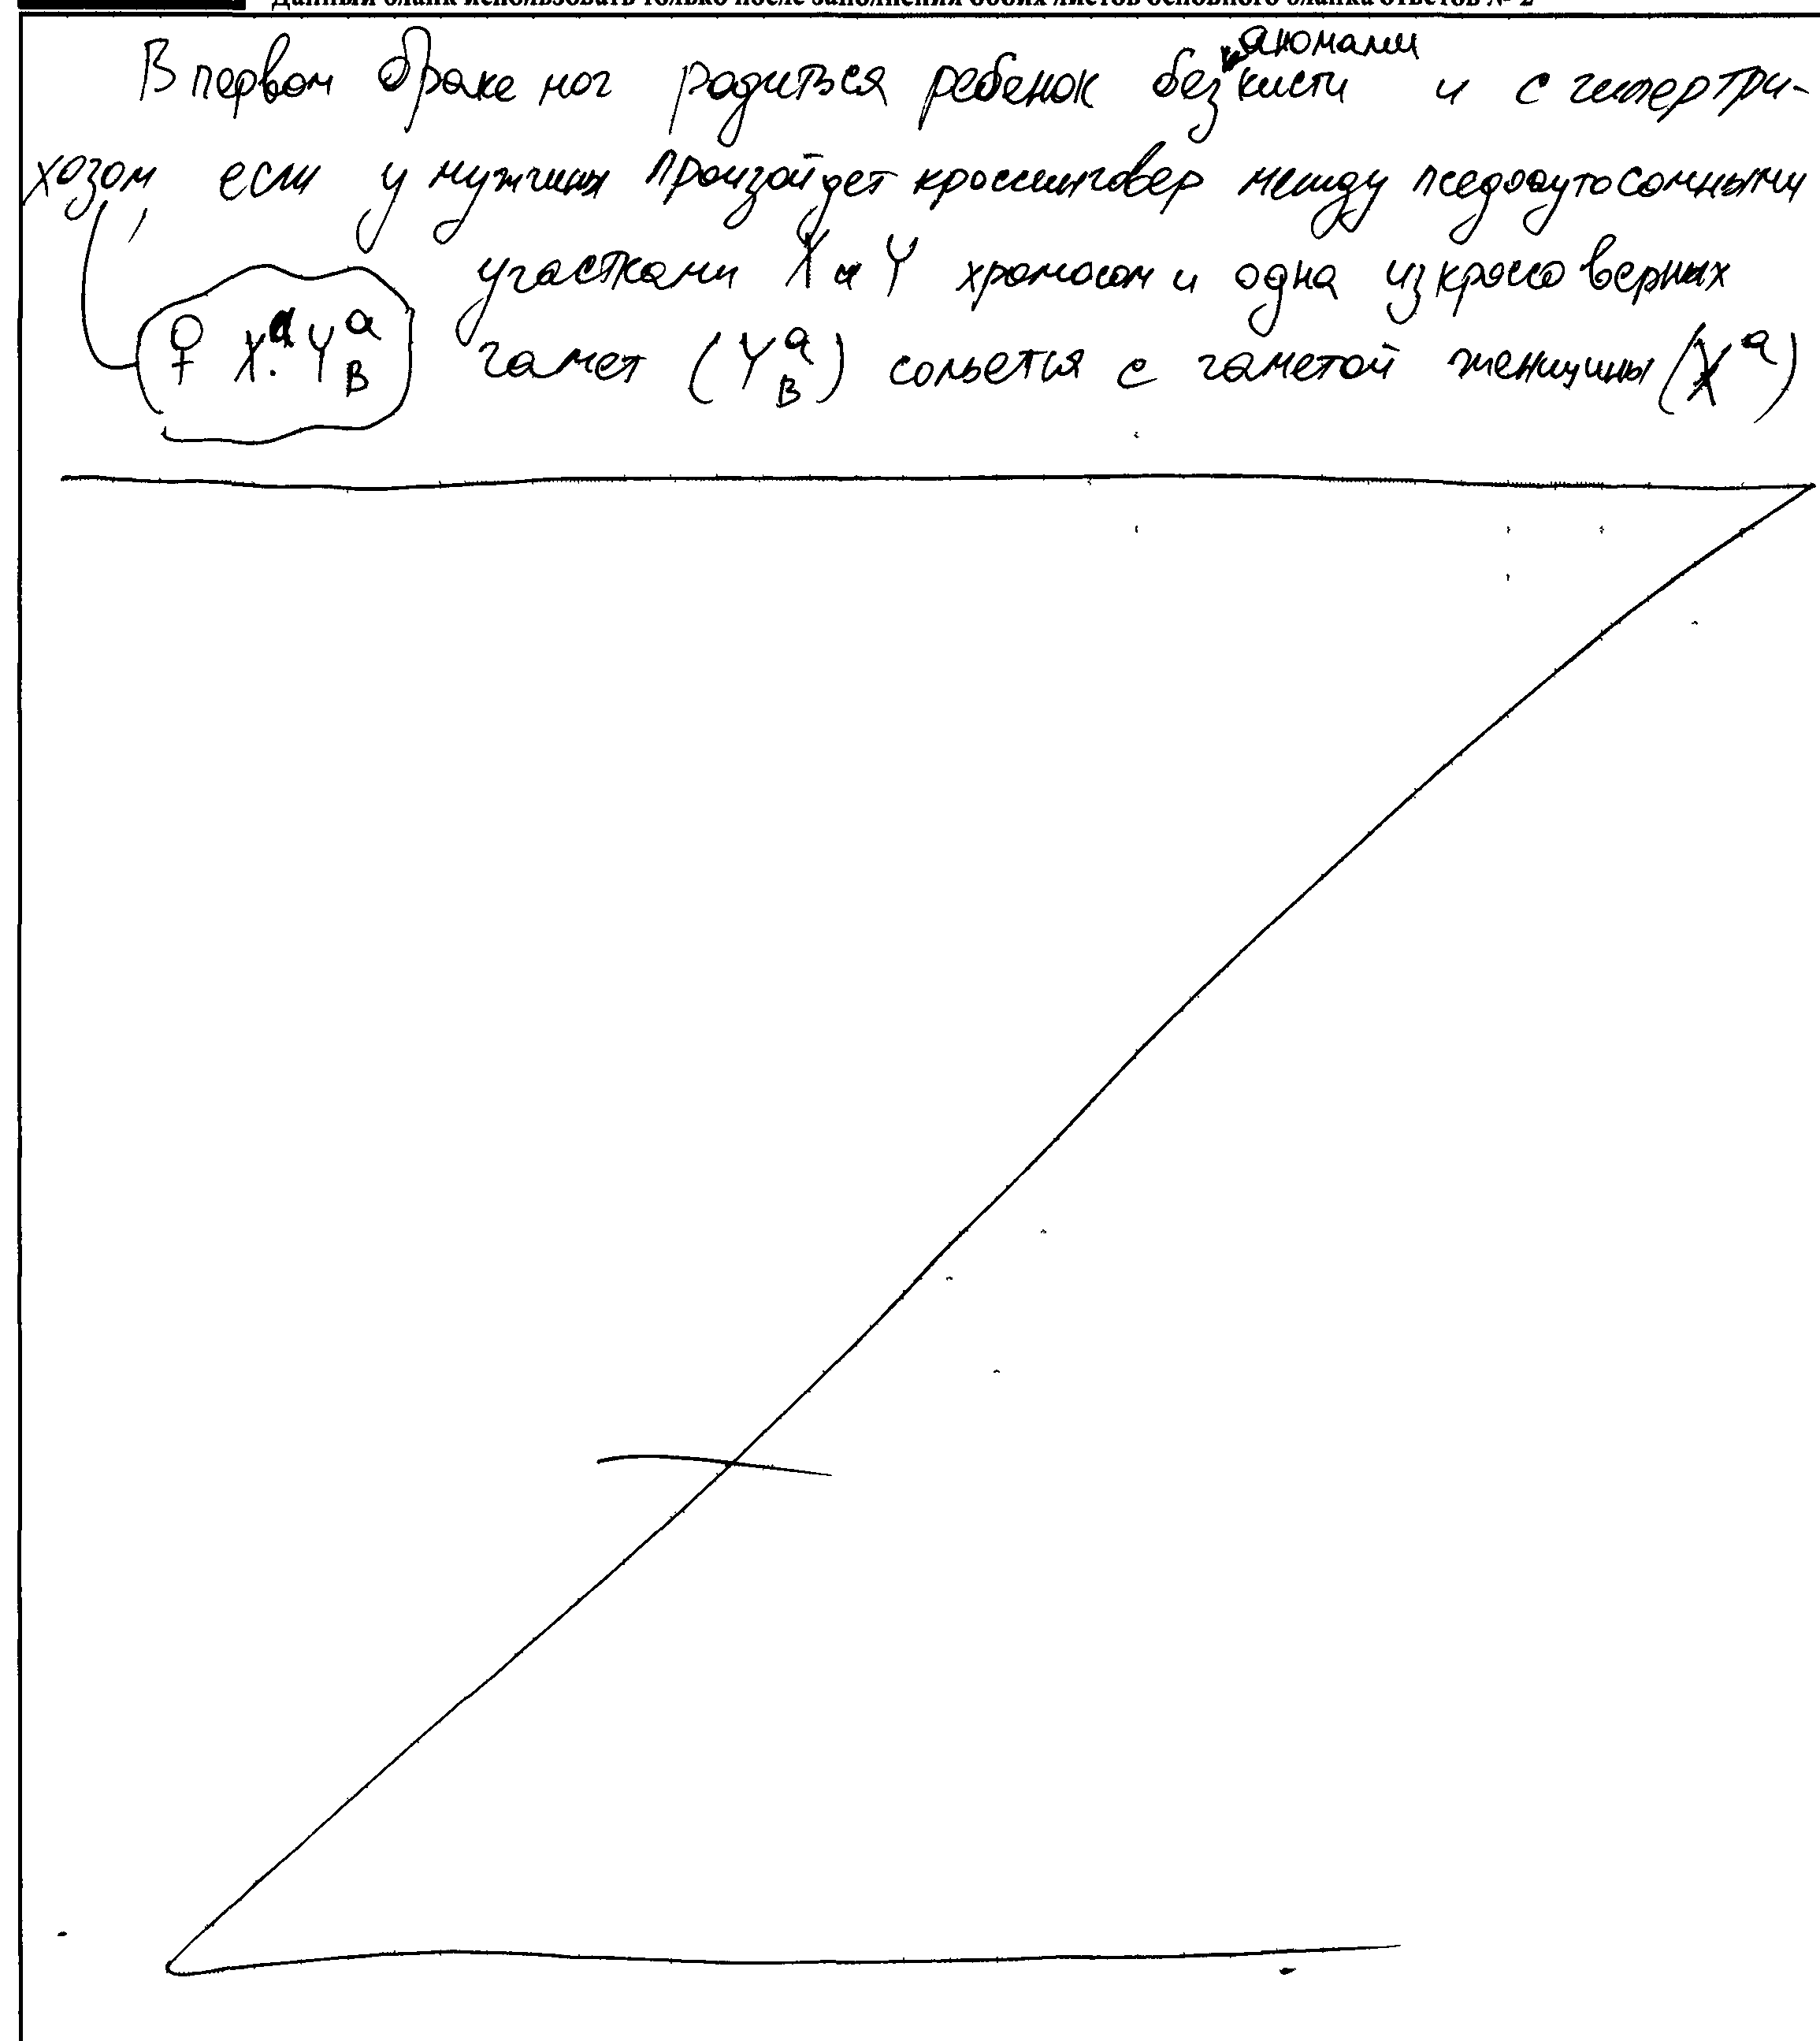 Данный бланк использовать только после заполнения обоих листов основного бланка ответов № 2
аномали
В первом браке мог родиться ребенок без кисти и с гипертри-
хозом, если у мужчины произойдет кроссинговер между псевдоаутосомными
участками X и Y хромосом и одна из кроссоверных
♀ XᵃYᵃ_B гамет (Yᵃ_B) сольется с гаметой женщины (Xᵃ)